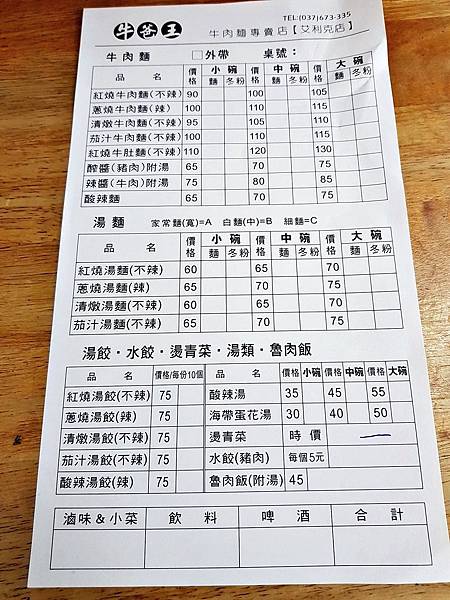 牛爸王
TEL:(037)673-335
牛肉麵專賣店【艾利克店】
牛肉麵 □外帶 桌號:
品名 價格 小碗 麵 冬粉 價格 中碗 麵 冬粉 價格 大碗 麵 冬粉
紅燒牛肉麵(不辣) 90 100 105
蔥燒牛肉麵(辣) 100 110 115
清燉牛肉麵(不辣) 95 105 110
茄汁牛肉麵(不辣) 100 110 115
紅燒牛肚麵(不辣) 110 120 130
醡醬(豬肉)附湯 65 70 75
辣醬(牛肉)附湯 75 80 85
酸辣麵 65 70 75
湯麵 家常麵(寬)=A 白麵(中)=B 細麵=C
品名 價格 小碗 麵 冬粉 價格 中碗 麵 冬粉 價格 大碗 麵 冬粉
紅燒湯麵(不辣) 60 65 70
蔥燒湯麵(辣) 65 70 75
清燉湯麵(不辣) 60 65 70
茄汁湯麵(不辣) 65 70 75
湯餃・水餃・燙青菜・湯類・魯肉飯
品名 價格/每份10個 品名 價格 小碗 價格 中碗 價格 大碗
紅燒湯餃(不辣) 75 酸辣湯 35 45 55
蔥燒湯餃(辣) 75 海帶蛋花湯 30 40 50
清燉湯餃(不辣) 75 燙青菜 時價
茄汁湯餃(不辣) 75 水餃(豬肉) 每個5元
酸辣湯餃(辣) 75 魯肉飯(附湯) 45
滷味&小菜 飲料 啤酒 合計